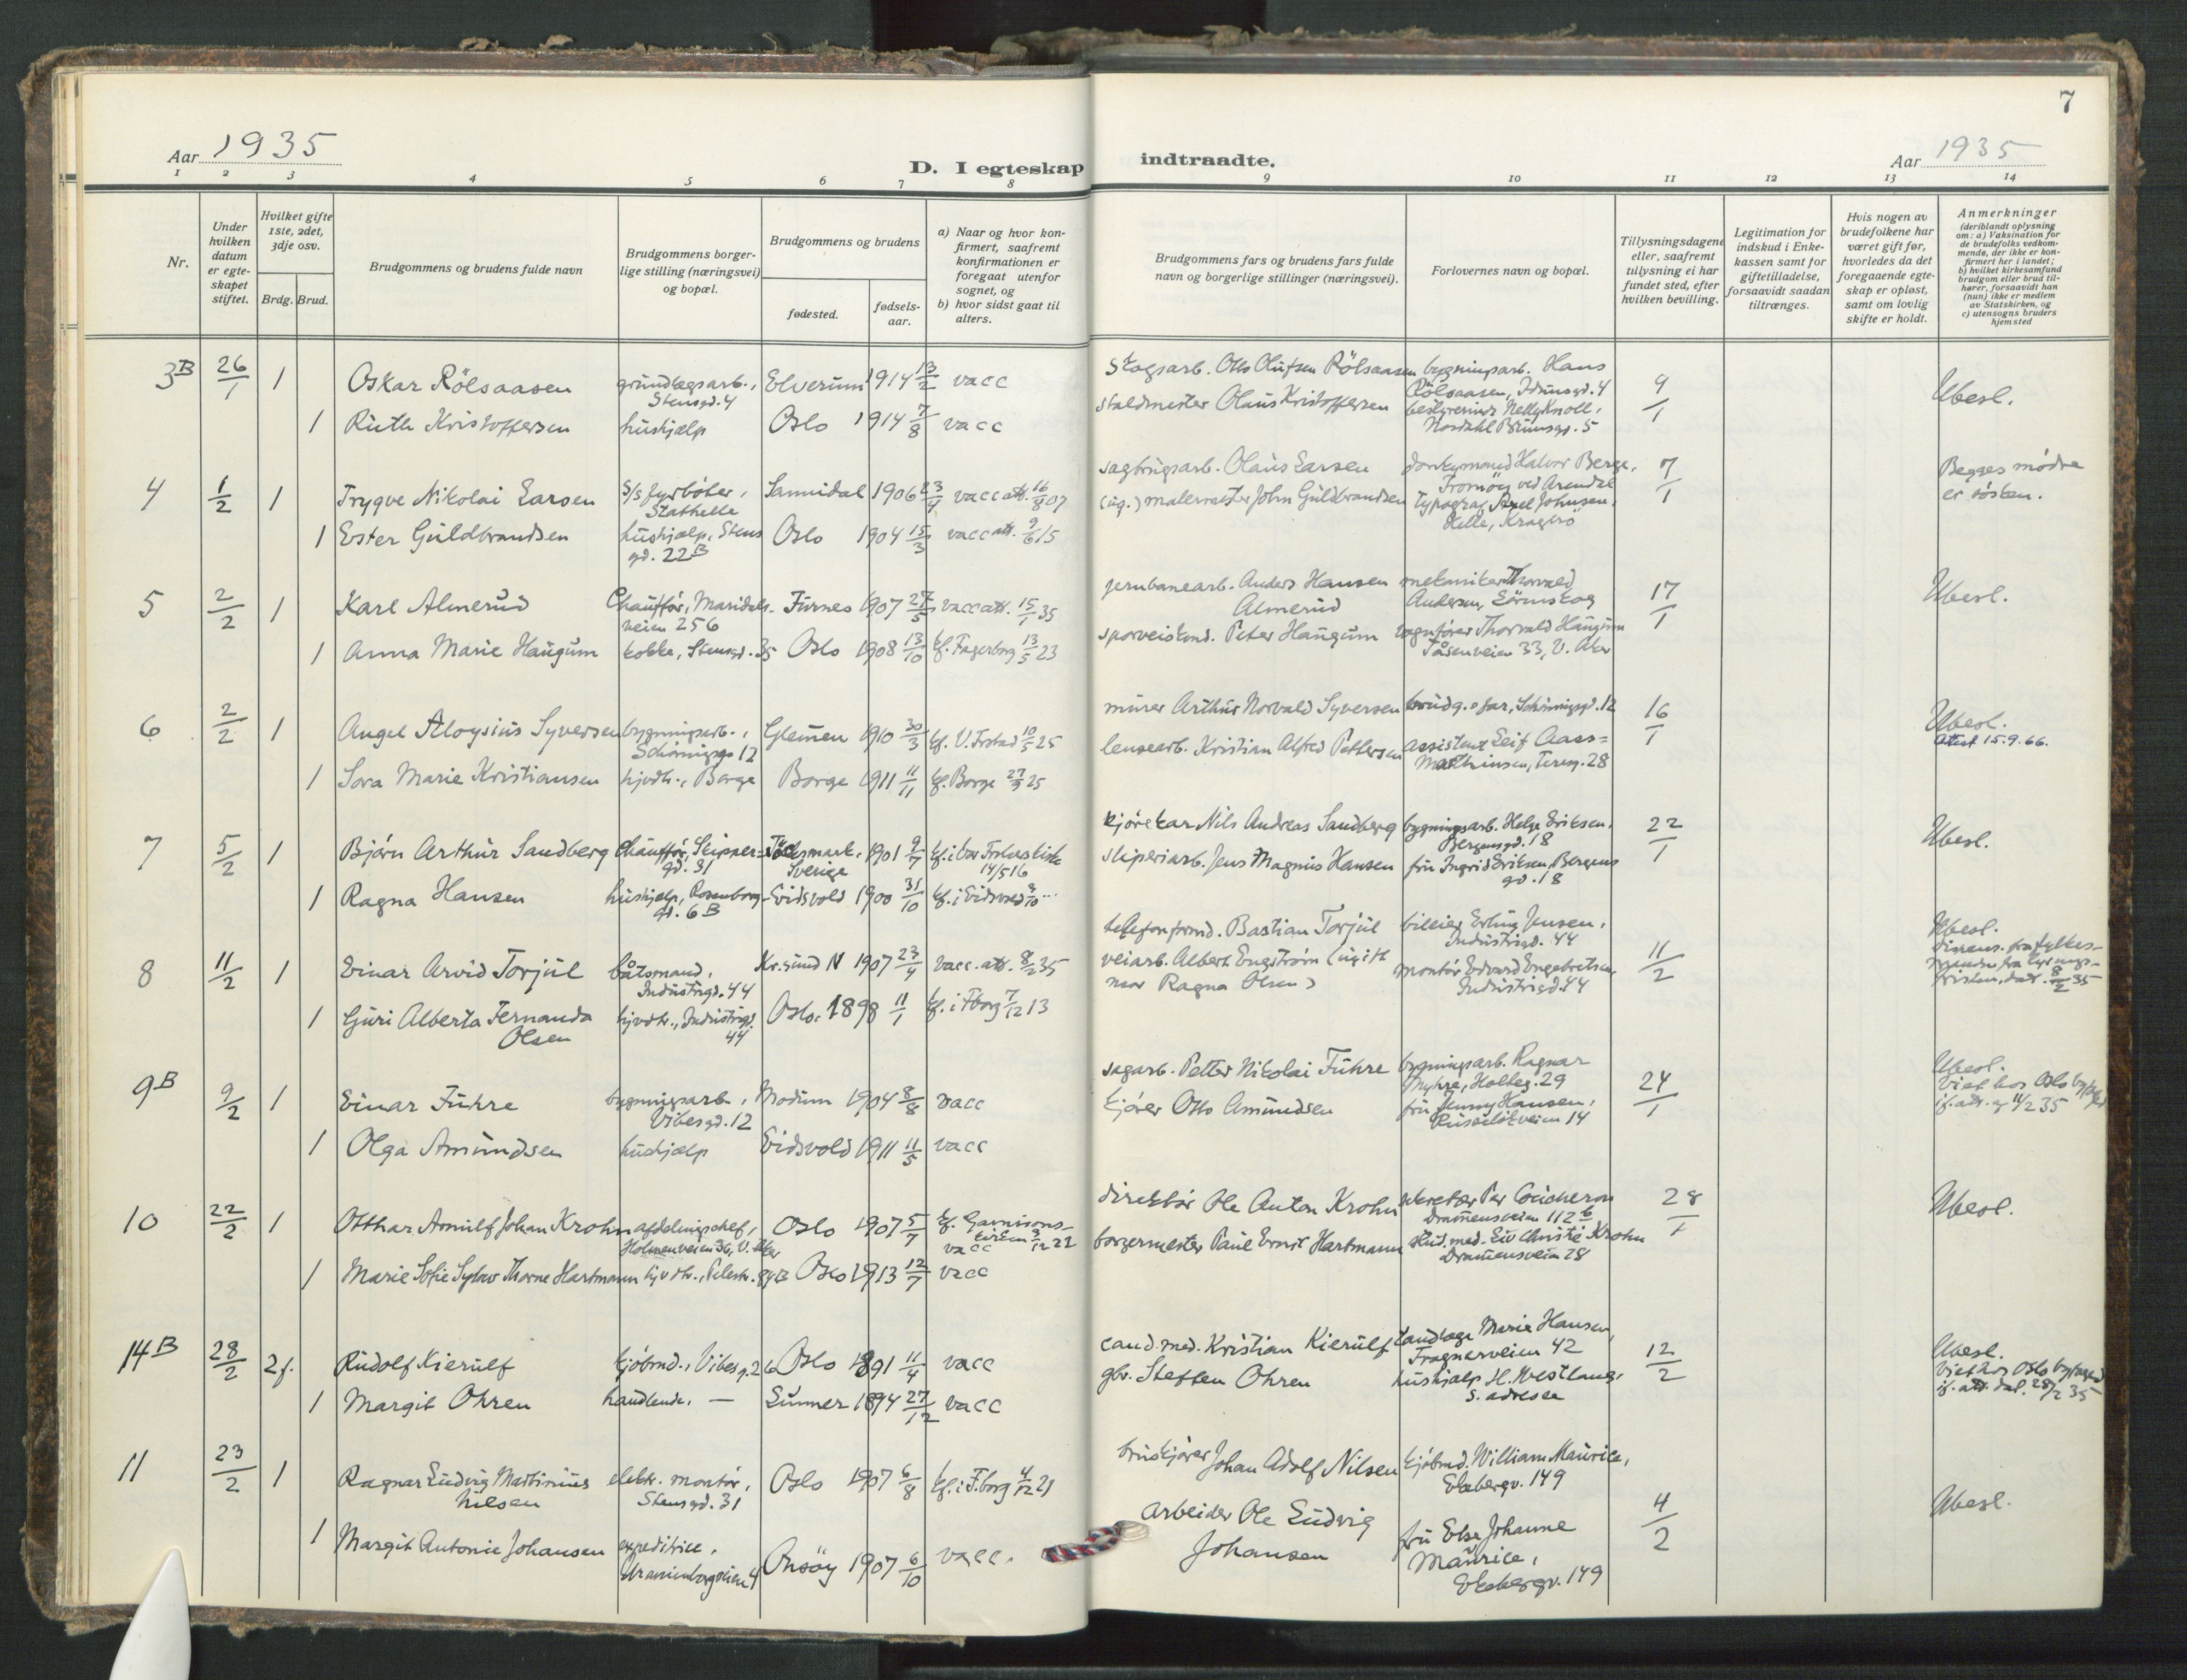 7
Aar 1935
D. I egteskap indtraadte.
Aar 1935
1 2 3 4 5 6 7 8 9 10 11 12 13 14
Nr.
Under hvilken datum er egte-skapet stiftet.
Hvilket gifte 1ste, 2det, 3dje osv.
Brdg. Brud.
Brudgommens og brudens fulde navn
Brudgommens borger-lige stilling (næringsvei) og bopæl.
Brudgommens og brudens
fødested.
fødsels-aar.
a) Naar og hvor kon-firmert, saafremt konfirmationen er foregaat utenfor sognet, og
b) hvor sidst gaat til alters.
Brudgommens fars og brudens fars fulde navn og borgerlige stillinger (næringsvei).
Forlovernes navn og bopæl.
Tillysningsdagene eller, saafremt tillysning ei har fundet sted, efter hvilken bevilling.
Legitimation for indskud i Enke-kassen samt for giftetilladelse, forsaavidt saadan tiltrænges.
Hvis nogen av brudefolkene har været gift før, hvorledes da det foregaaende egte-skap er opløst, samt om lovlig skifte er holdt.
Anmerkninger (deriblandt oplysning om: a) Vaksination for de brudefolks vedkom-mende, der ikke er kon-firmert her i landet; b) hvilket kirkesamfund brudgom eller brud til-hører, forsaavidt han (hun) ikke er medlem av Statskirken, og c) utensogns bruders hjemsted
3B 26/1 1 Oskar Rölsaasen grundlagsarb., Stensgd. 4 Elverum 1914 13/2 vacc
Skogsarb. Otto Olufsen Rölsaasen bygningsarb. Hans Rölsaasen, Idunsgd. 4 9/1 Ubesl.
1 Ruth Kristoffersen hushjælp Oslo 1914 7/8 vacc
staldmester Olaus Kristoffersen bestyrerinde Nelly Knoll, Nordahl Brunsgd. 5
4 1/2 1 Trygve Nikolai Larsen S/s fyrbøter, Stathelle Sannidal 1906 23/4 vacc att. 16/8 07
sagbrugsarb. Olaus Larsen donkeymand Halvor Berge, Tromøy ved Arendal 7/1 Begges mødre er søsken.
1 Ester Guldbrandsen hushjælp, Stens gd. 22B Oslo 1904 15/3 vacc att. 9/6 15
(ug.) malermester John Guldbrandsen typograf Axel Johnsen, Helle, Kragerö
5 2/2 1 Karl Almerud Chauffør, Maridals-veien 256 Furnes 1907 27/5 vacc att. 15/1 35
jernbanearb. Anders Hansen Almerud mekaniker Thorvald Andersen, Lörenskog 17/1 Ubesl.
1 Anna Marie Haugum kokke, Stensgd. 35 Oslo 1908 13/10 kf. Fagerborg 13/5 23
sporveiskond. Peter Haugum vognfører Thorvald Haugum Tåsenveien 33, V. Aker
6 2/2 1 Angel Aloysius Syversen bygningsarb., Schöningsgs 12 Glemen 1910 30/3 kf. V. Frstad 10/5 25
murer Arthur Norvald Syversen brudg.s far, Schöningsgd. 12 16/1 Ubesl. Attest 15.9.66.
1 Sora Marie Kristiansen hjvdt., Borge Borge 1911 11/11 kf. Borge 27/9 25
lensearb. Kristian Alfred Pettersen assistent Leif Aass= Mathinsen, Teresg. 28
7 5/2 1 Bjørn Arthur Sandberg Chauffør, Skipper= gd. 31 Töcksmark, Sverige 1901 9/7 kf. i Vor Frelsers kirke 14/5 16
kjørekar Nils Andreas Sandberg bygningsarb. Helge Eriksen, Bergensgd. 18 22/1 Ubesl.
1 Ragna Hansen hushjelp, Rosenborg-gt. 6B Eidsvold 1900 31/10 kf. i Eidsvold
sliperiarb. Jens Magnus Hansen fru Ingrid Eriksen, Bergens gd. 18
8 11/2 1 Einar Arvid Torjul båtsmand, Industrigd. 44 Kr.sund N 1907 23/4 vacc. att. 8/2 35
telefonformd. Bastian Torjul bileier Erling Jensen, Industrigd. 44 11/2 Ubesl. Dispens. fra fylkes-manden fra lysnings-fristen, dat. 8/2 35
1 Guri Alberta Fernanda Olsen hjvdt., Industrigd. 44 Oslo. 1898 11/1 kf. i Fborg 7/12 13
veiarb. Albert Engström (ugift mor Ragna Olsen) montør Edvard Engebretsen, Industrigd. 44
9B 9/2 1 Einar Fuhre bygningsarb., Vibesgd. 12 Modum 1904 8/8 vacc
sagarb. Petter Nikolai Fuhre bygningsarb. Ragnar Myhre, Holteg. 29 24/1 Ubesl. Viet hos Oslo byfoged if. att. av 11/2 35
1 Olga Amundsen hushjælp Eidsvold 1911 11/5 vacc
kjører Otto Amundsen fru Jenny Hansen, 14
10 22/2 1 Otthar Arnulf Johan Krohn afdelingschef, Holmenveien 36, V. Aker Oslo 1907 5/7 kf. Garnisons-kirken 3/12 22 vacc
direktør Ole Anton Krohn sekretær Per Coucheron Drammensveien 112 b 28/1 Ubesl.
1 Marie Sofie Sylow Thorne Hartmann hjvdt., Pilestr. 84B Oslo 1913 12/7 vacc
borgermester Paul Ernst Hartmann stud. med. Liv Christie Krohn Drammensveien 28
14B 28/2 2f. Rudolf Kierulf kjøbmd., Vibesg. 26 Oslo 1891 11/4 vacc
cand. med. Kristian Kierulf tandlæge Marie Hansen, Frognerveien 42 12/2 Ubesl. Viet hos Oslo byfoged if. att. dat. 28/2 35
1 Margit Ohren handlende, — Lunner 1894 27/12 vacc
gbr. Steffen Ohren hushjælp H. Westlund, s. adresse
11 23/2 1 Ragnar Ludvig Martinius Nilsen elektr. montør, Stensgd. 31 Oslo 1907 6/8 kf. i F.borg 4/12 21
bruskjører Johan Adolf Nilsen kjøbmd. William Maurice, Ekebergv. 149 4/2 Ubesl.
1 Margit Antonie Johansen expeditrice, Uranienborgveien 4 Onsöy 1907 6/10 vacc.
arbeider Ole Ludvig Johansen fru Else Johanne Maurice, Ekebergv. 149